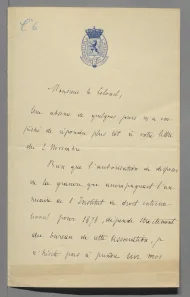 Monsieur le Colonel,
Une absence de quelques jours m'a em-
pêché de répondre plus tôt à votre lettre
du 2 Novembre.
Bien que l'autorisation de disposer
de la gravure que accompagnant l'an-
nuaire de l'Institut de droit interna-
tional pour 1878, dépende directement
du bureau de cette Association, je
n'hésite pas à prendre sur moi